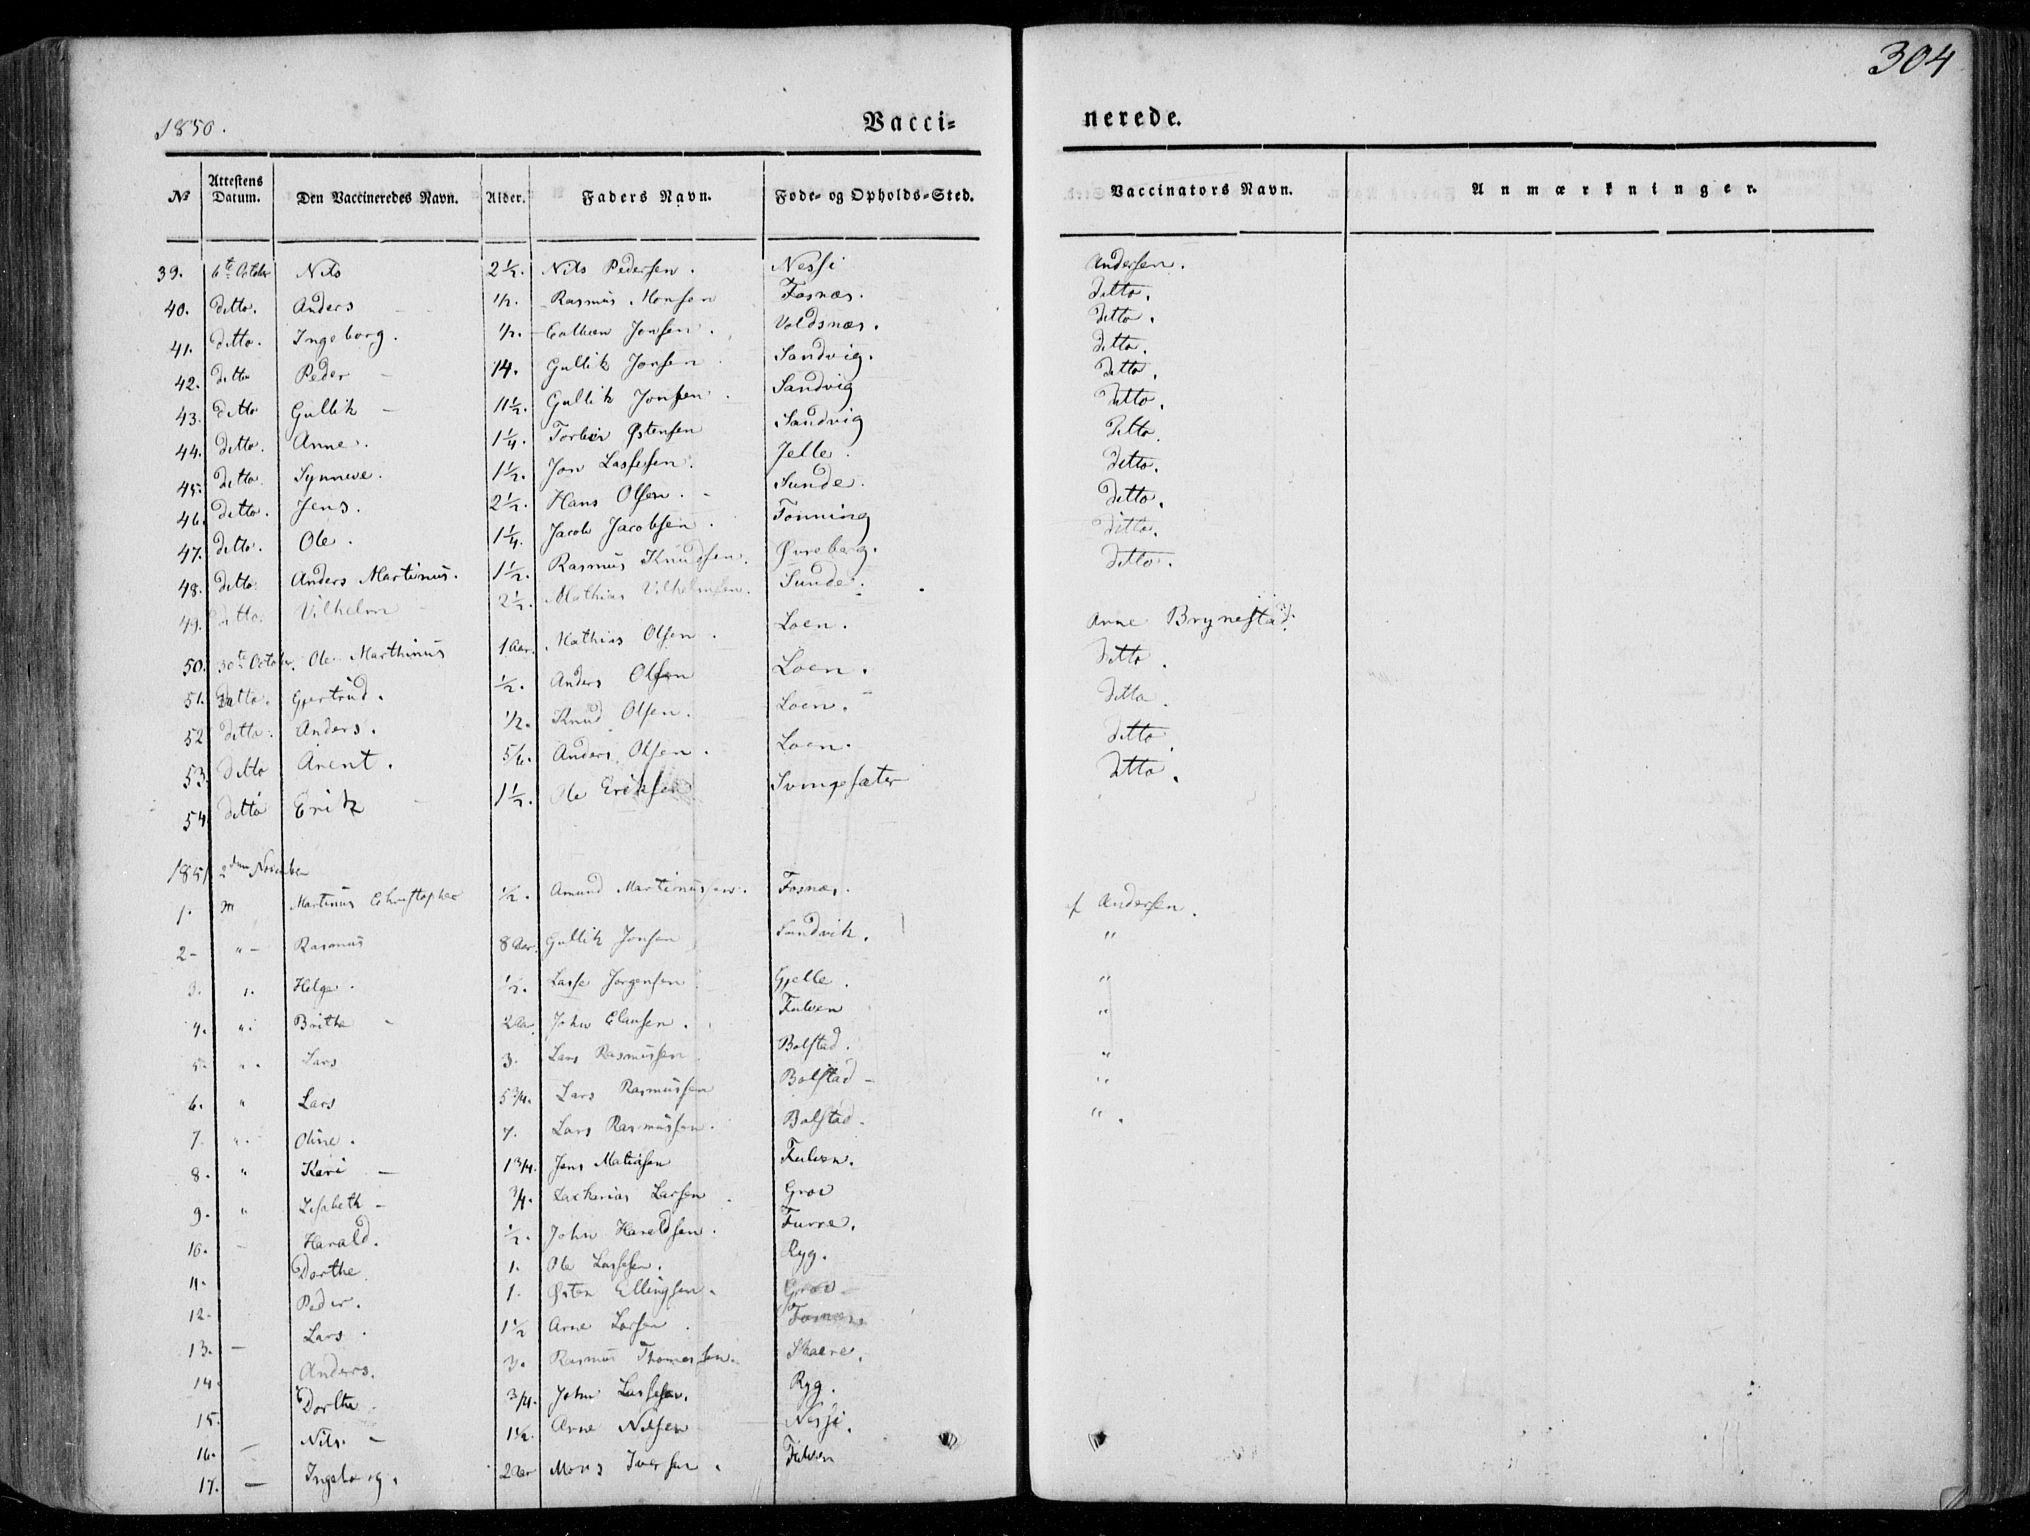 304
1850.
Vacci= nerede.
№ Attestens Datum. Den Vaccineredes Navn. Alder. Faders Navn. Føde- og Opholds-Sted. Vaccinators Navn. Anmærkninger.
39. 6te October Nils 2 1/2. Nils Pedersen. Nessi Andersen.
40. Ditto. Anders 1/2. Rasmus Monsen Fosnæs. Ditto.
41. Ditto. Ingeborg. 1/2. Jonsen. Voldsnæs. Ditto.
42. Ditto Peder 14. Gullik Jonsen Sandvig. Ditto.
43. Ditto Gullik 11 1/2. Gullik Jonsen. Sandvig Ditto.
44. Ditto. Anne. 1 1/4. Torbiør Østensen Sandvig Ditto.
45. Ditto Synneve. 1 1/2. Jon Lassesen. Jelle. Ditto.
46. Ditto. Jens. 2 1/2. Hans Olsen. Sunde. Ditto.
47. Ditto. Ole. 1 1/4. Jacob Jacobsen. Tonning Ditto.
48. Ditto. Anders Martinus. 1 1/2. Rasmus Knudsen. Øvreberg. Ditto.
49. Ditto. Vilhelm 2 1/2. Mathias Vilhelmsen. Sunde. Ditto.
50. 30te October. Ole Marthinus 1 Aar. Mathias Olsen. Loen. Anne Brynestad.
51. Ditto. Gjertrud. 1/2. Anders Olsen Loen. Ditto.
52 Ditto. Anders. 1/2. Knud Olsen. Loen. Ditto.
53. Ditto Arent. 5/6. Anders Olsen. Loen. Ditto
54. Ditto Erik 1 1/2. Ole Eriksen Svingesæter Ditto.
1851 2den November
1. Martinus Christopher 1/2. Amund Martinussen. Fosnæs. af Andersen.
2- " - Rasmus 8 Aar. Gullik Jonsen Sandvik. "
3. ". Helge. 1/2. Lasse Jørgensen Gjelle. "
4. ". Brithe - 2 Aar. John Clausen. Fulven "
5. ". Lars 3. Lars Rasmussen Bolstad. "
6. " Lars 5 3/4. Lars Rasmussen Bolstad - "
7. ". Oline. 7. Lars Rasmussen. Bolstad. ".
8. " Kari - 1 3/4. Jens Matiasen Fulven.
9. " Lisabeth - 3/4. Zacharias Larsen Grov
10. - Harald. 1/2. John Haraldsen. Furre.
11. Dorthe 1. Ole Lassesen. Ryg.
12. Peder. 1. Østen Ellingsen. Grov
13. - Lars. 1 1/2 Arne Larsen Fosnæs
14. Anders. 3. Rasmus Thomassen. Skaare.
15. Dorthe 3/4. John Lassesen. Ryg.
16. - Nils. - 1 1/2. Arne Nilsen Nesje.
17. - Ingeborg. 2 Aar Mons Iversen. Fulven